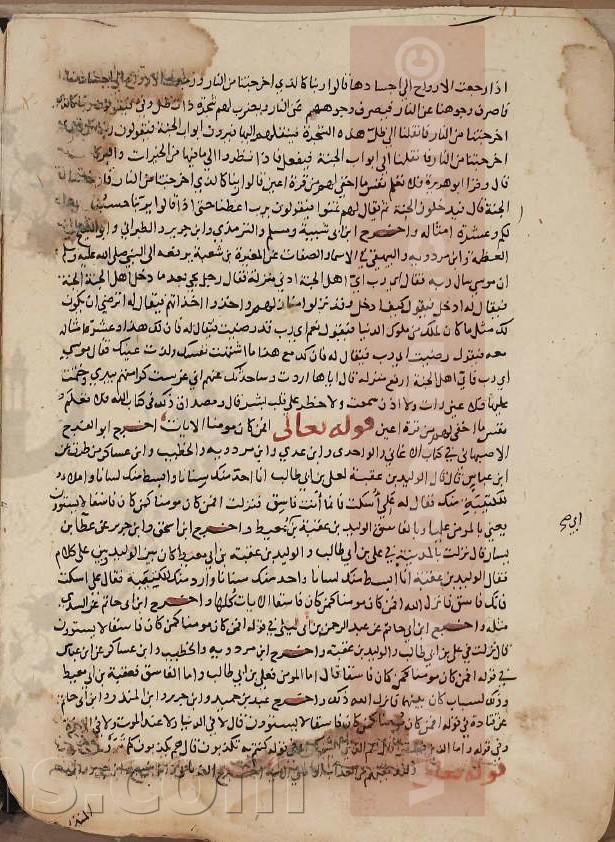 اذا رجعت الارواح الى اجسادها قالوا ربنا كالذي اخرجتنا من النار
فاصرف وجوهنا عن النار فيصرف وجوههم عن النار ويضرب لهم شجرة ذات ظل وفى فيقولون ربنا كالذي
اخرجتنا من النار فانقلنا الى ظل هذه الشجرة فينقلهم اليها فيرون ابواب الجنة فيقولون
اخرجتنا من النار فانقلنا الى ابواب الجنة فيفعل فاذا نظروا الى ما فيها من الخيرات
قال وقرا ابو هريرة فلا تعلم نفس ما اخفى لهم من قرة اعين قالوا ربنا كالذي اخرجتنا من النار
الجنة قال فيدخلون الجنة ثم يقال لهم تمنوا فيقولون يرب اعطنا حتى اذا قالوا يربنا حسبنا
لكم وعشرة امثاله واخرج ابن ابى شيبة ومسلم والترمذي وابن جرير والطبراني وابو الشيخ في
العظمة وابن مردويه والبيهقي في الاسماء والصفات عن المغيرة بن شعبة يرفعه الى النبي صلى الله عليه وسلم
ان موسى سال ربه فقال اى رب اى اهل الجنة ادنى منزلة فقال رجل يجى بعد ما دخل اهل الجنة الجنة
فيقال له ادخل فيقول كيف ادخل وقد نزلوا منازلهم واخذوا اخذاتهم فيقال له اترضى ان يكون
لك مثل ما كان لملك من ملوك الدنيا فيقول نعم اى رب قد رضيت فيقال له فان لك هذا وعشرة امثاله
معه فيقول رضيت اى رب فيقال له فان لك مع هذا ما اشتهت نفسك ولذت عينك فقال موسى
اى رب فاى اهل الجنة ارفع منزلة قال اياها اردت وساحدثك عنهم انى غرست كرامتهم بيدي وختمت
عليها فلا عين رات ولا اذن سمعت ولا خطر على قلب بشر قال ومصداق ذلك في كتاب الله فلا تعلم
نفس ما اخفى لهم من قرة اعين قوله تعالى افمن كان مومنا الايات اخرج ابو الفرج
الاصبهاني في كتاب الاغاني والواحدى وابن عدي وابن مردويه والخطيب وابن عساكر من طرق عن
ابن عباس قال قال الوليد بن عقبة لعلى بن ابى طالب انا احد منك سنانا وابسط منك لسانا واملاء
للكتيبة منك فقال له على اسكت فانما انت فاسق فنزلت افمن كان مومنا كمن كان فاسقا لا يستوون
يعنى بالمومن عليا وبالفاسق الوليد بن عقبة بن ابى معيط واخرج ابن اسحق وابن جرير عن عطا بن
يسار قال نزلت بالمدينة في على بن ابى طالب والوليد بن عقبة بن ابى معيط كان بين الوليد وبين على كلام
فقال الوليد بن عقبة انا ابسط منك لسانا واحد منك سنانا وارد منك للكتيبة فقال على اسكت
فانك فاسق فانزل الله افمن كان مومنا كمن كان فاسقا الايات كلها واخرج ابن ابى حاتم عن السدي
مثله واخرج ابن ابى حاتم عن عبد الرحمن بن ابى ليلى في قوله افمن كان مومنا كمن كان فاسقا لا يستوون
قال نزلت في على بن ابى طالب والوليد بن عقبة واخرج ابن مردويه والخطيب وابن عساكر عن ابن عباس
في قوله افمن كان مومنا كمن كان فاسقا قال اما المومن فعلى بن ابى طالب واما الفاسق فعقبة بن ابى معيط
وذلك لسباب كان بينهما فانزل الله ذلك واخرج عبد بن حميد وابن جرير وابن المنذر وابن ابى حاتم
عن قتادة في قوله افمن كان مومنا كمن كان فاسقا لا يستوون قال لا في الدنيا ولا عند الموت ولا في الاخرة
وفي قوله واما الذين فسقوا
قوله تعالى
المنذر